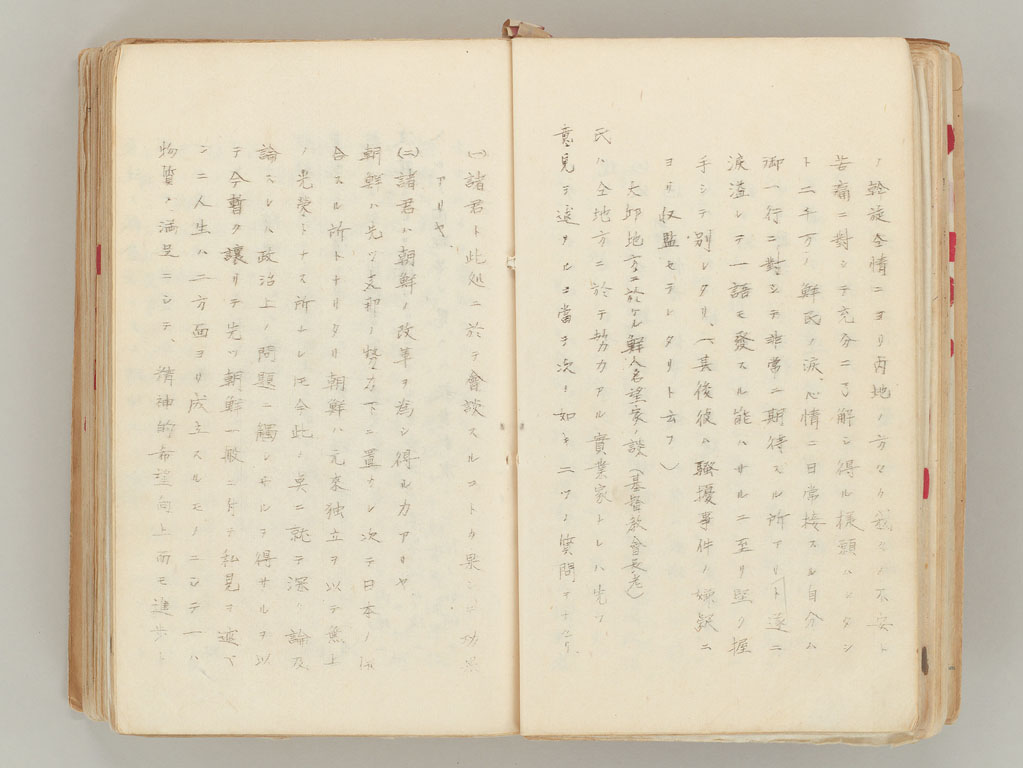 ノ幹旋全情ニヨリ内地ノ方々カ我々ノ不安ト
苦痛ニ對シテ充分ニ了解シ得ル様願ハシタシ
ト二千万ノ鮮民ノ涙、心情ニ日常接スル自分ハ
御一行ニ對シテ非常ニ期待スル所アリト遂ニ
涙溢レテ一語モ發スル能ハサルニ至リ堅ク握
手シテ別レタリ、(其後彼ハ騒擾事件ノ嫌疑ニ
ヨリ収監セラレタリト云フ)
大邱地方ニ於ケル鮮人名望家ノ談(基督教會長老)
氏ハ全地方ニ於テ勢力アル實業家トシ
意見ヲ述フルニ當リ次ノ如キ二ツノ質問ヲナセリ、
(一)諸君ト此処ニ於テ會談スルコトカ果シテ功果
アリヤ、
(二)諸君ハ朝鮮ノ改革ヲ為シ得ルカアリヤ、
朝鮮ハ先ツ支那ノ勢力下ニ置カレ次テ日本ノ併
合スル所トナリタリ朝鮮ハ元來独立ヲ以テ無上
ノ光榮トナス所ナレ圧今此ノ点ニ就テ深ク論及
論スレハ政治上ノ問題ニ觸レサルヲ得サルヲ以
テ今暫ク讓リテ先ツ朝鮮一般ニ付テ私見ヲ述ヘ
ンニ人生ハ二方面ヨリ成立スルモノニシテ一ハ
物質ノ満足ニシテ、精神的希望向上而モ進歩ト